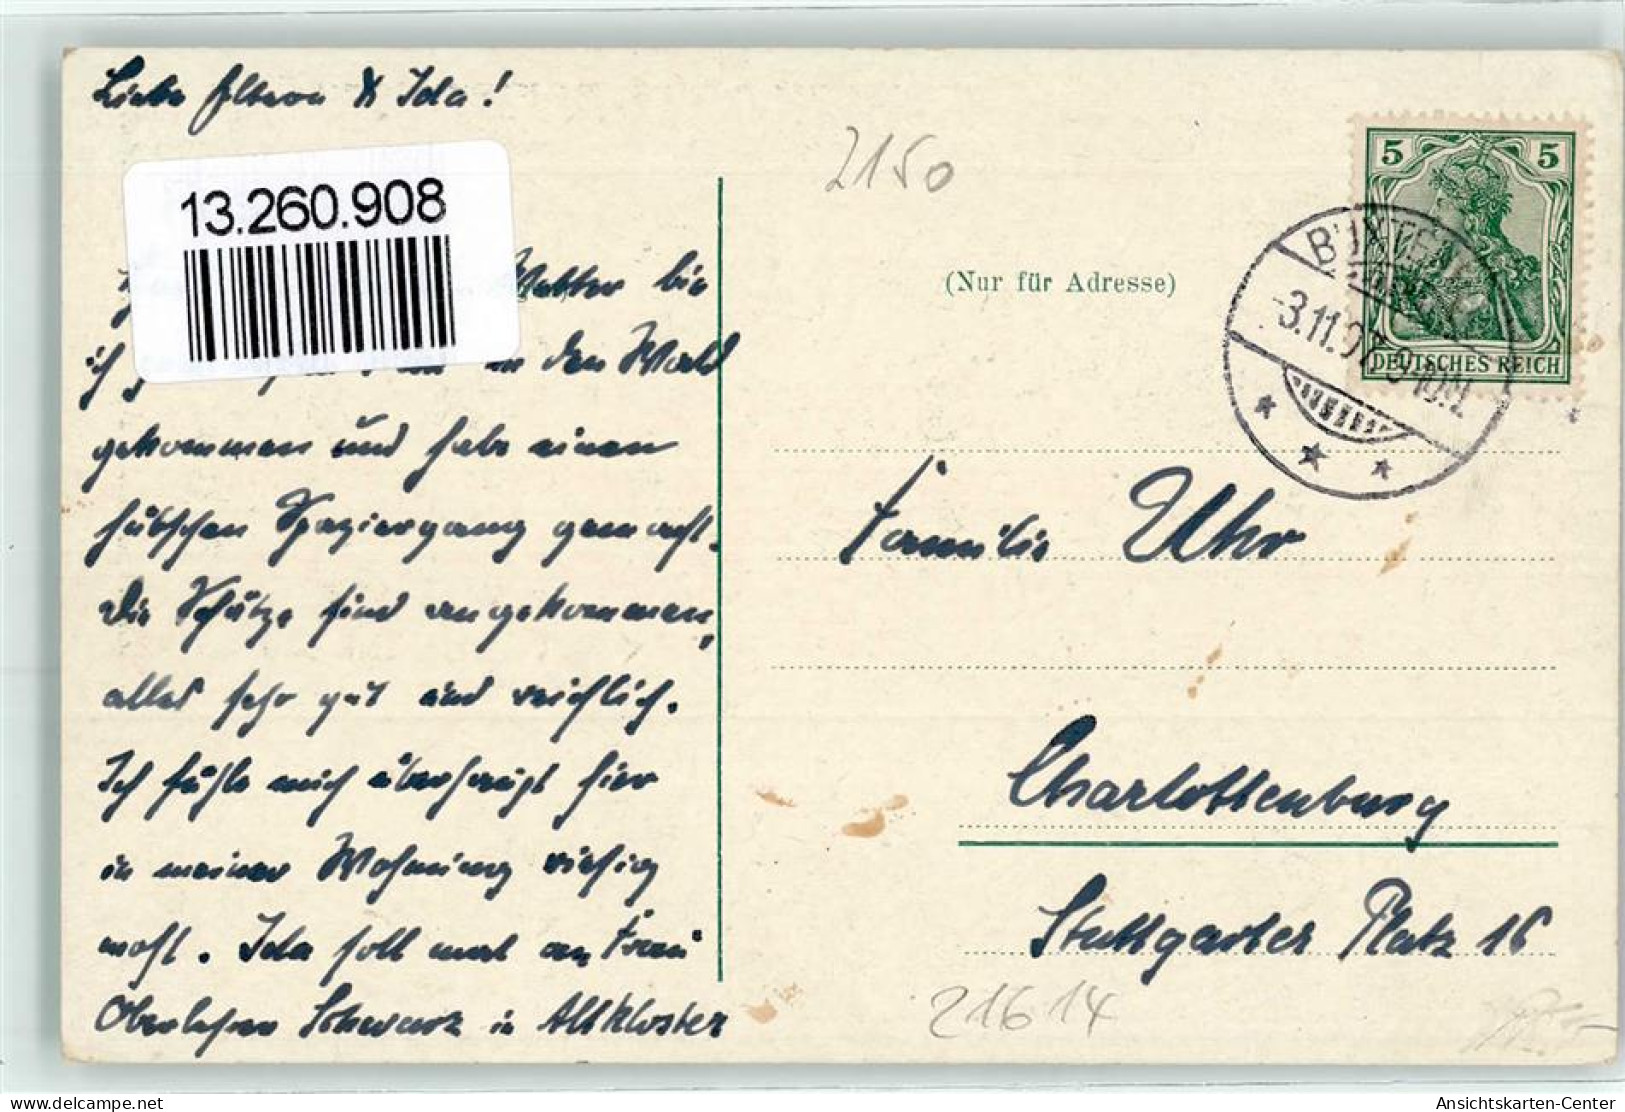 Liebe Eltern & Ida!
13.260.908
Wetter bin
ich in den Wald
gekommen und habe einen
hübschen Spaziergang gemacht.
Die Schütze sind angekommen,
alles sehr gut und reichlich.
Ich fühle mich überhaupt hier
in meiner Wohnung riesig
wohl. Ida soll mal an Frau
Oberlehrer Schwarz in Altkloster
2150
(Nur für Adresse)
5 5
DEUTSCHES REICH
BUXTEHUDE
-3.11.07.
Familie Uhr
Charlottenburg
Stuttgarter Platz 16
21614
delcampe.net
Ansichtskarten-Center